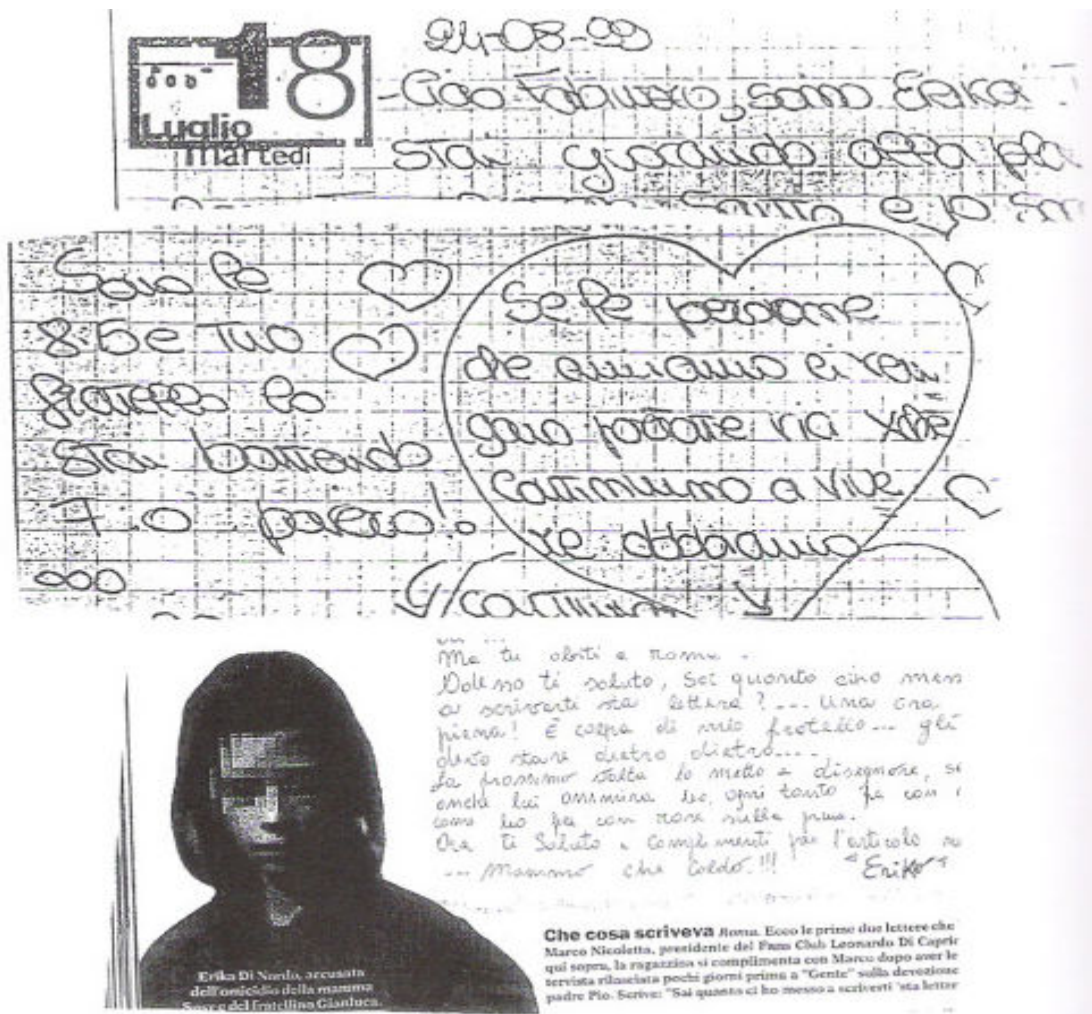 18
Luglio
martedì
24-08-99
Ciao Fabrizio, sono Erika
stai giocando alla pla
Santo e io
Sono le
8.5 e tuo
fratello lo
stai battendo
7.0
Se le persone
che amiamo ci ven
gono portate via xchè
continuino a vive
re dobbiamo
Ma tu abiti a Roma.
ti saluto, Sai quanto ciò mess
a scriverti sta lettera?... Una ora
piena! È colpa di mio fratello... gli
devo stare dietro dietro....
La prossimo volta lo metto a disegnare, si
anche lui ammira leo, ogni tanto fa con i
come leo fa con rose nella
Ora ti Saluto e complimenti per l'articolo su
... Mamma che caldo!!! "Erika"
Erika Di Nardo, accusata
dell'omicidio della mamma
Susy e del fratellino Gianluca.
Che cosa scriveva Roma. Ecco le prime due lettere che
Marco Nicoletta, presidente del Fans Club Leonardo Di Capri
qui sopra, la ragazzina si complimenta con Marco dopo aver le
tervista rilasciata pochi giorni prima a "Gente" sulla devozione
padre Pio. Scrive: "Sai quanto ci ho messo a scriverti 'sta letter